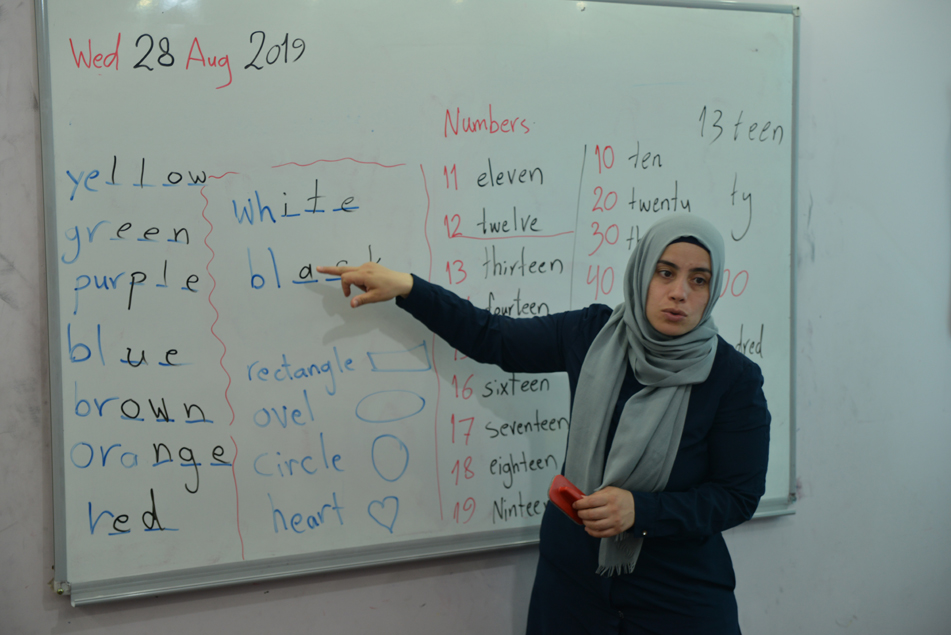 Wed 28 Aug 2019
yellow
green
purple
blue
brown
orange
red
white
rectangle
ovel
circle
heart
Numbers
11 eleven
12 twelve
13 thirteen
fourteen
16 sixteen
17 seventeen
18 eighteen
19
13 teen
10 ten
20 twenty
ty
30
40